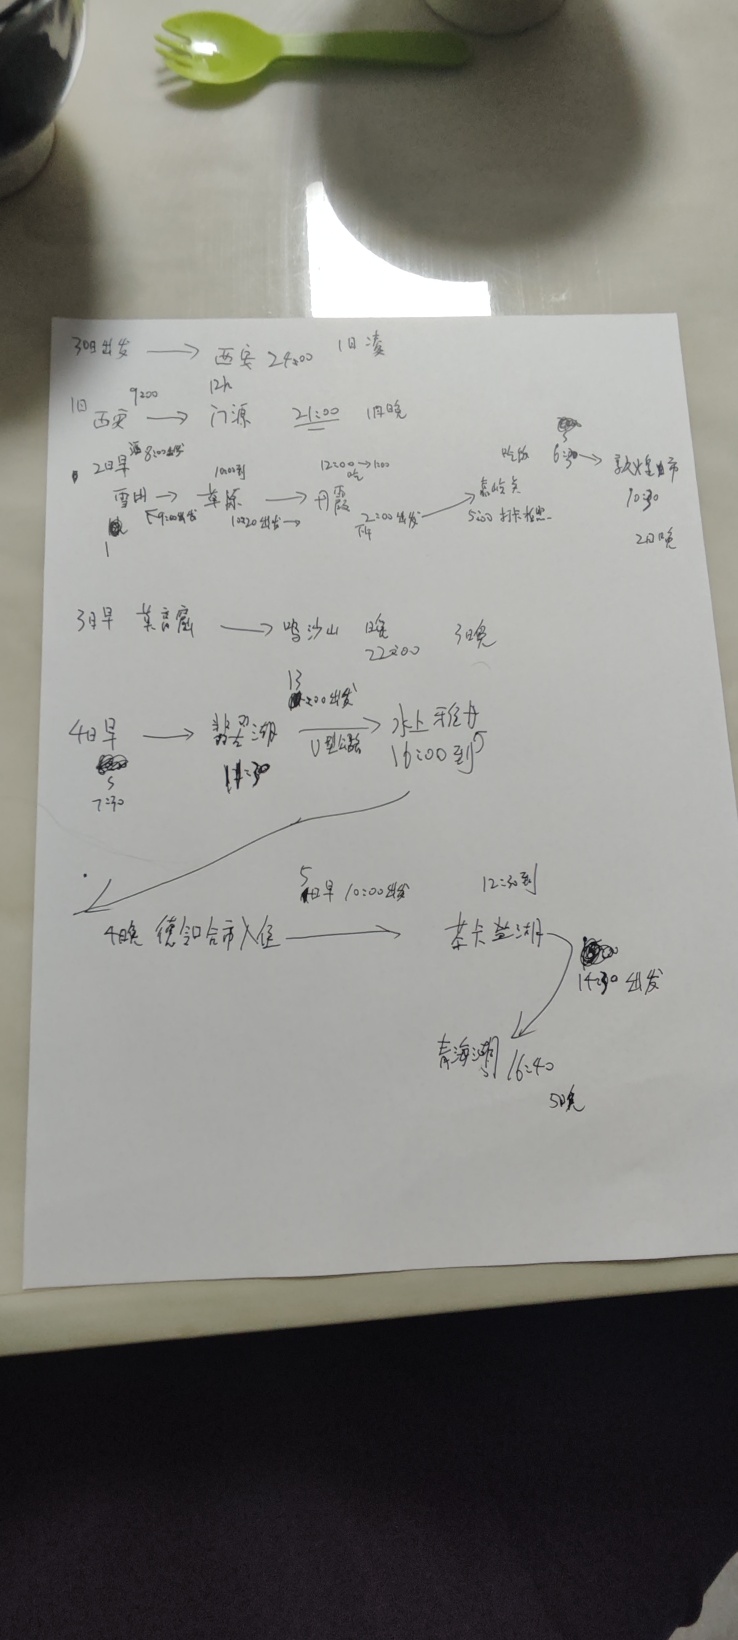 30日出发 → 西安 24:00 1日凌
1日 9:00 12h
西安 → 门源 21:00 1日晚
2日早 8:00出发 10:00到 12:00→1:00 吃 吃饭 6:30 → 敦煌市
雪山 → 草原 → 丹霞 嘉峪关 10:30
9:00出发 10:20出发→ 下午 2:00出发 5:00 打卡拍照 2日晚
3日早 莫高窟 → 鸣沙山 晚 22:00 3日晚
13:00出发
4日早 → 翡翠湖 → 水上雅丹
7:30 11:30 U型公路 16:00到
5日早 10:00出发 12:30到
4日晚 德令哈市入住 → 茶卡盐湖
14:30 出发
青海湖 16:40
5日晚